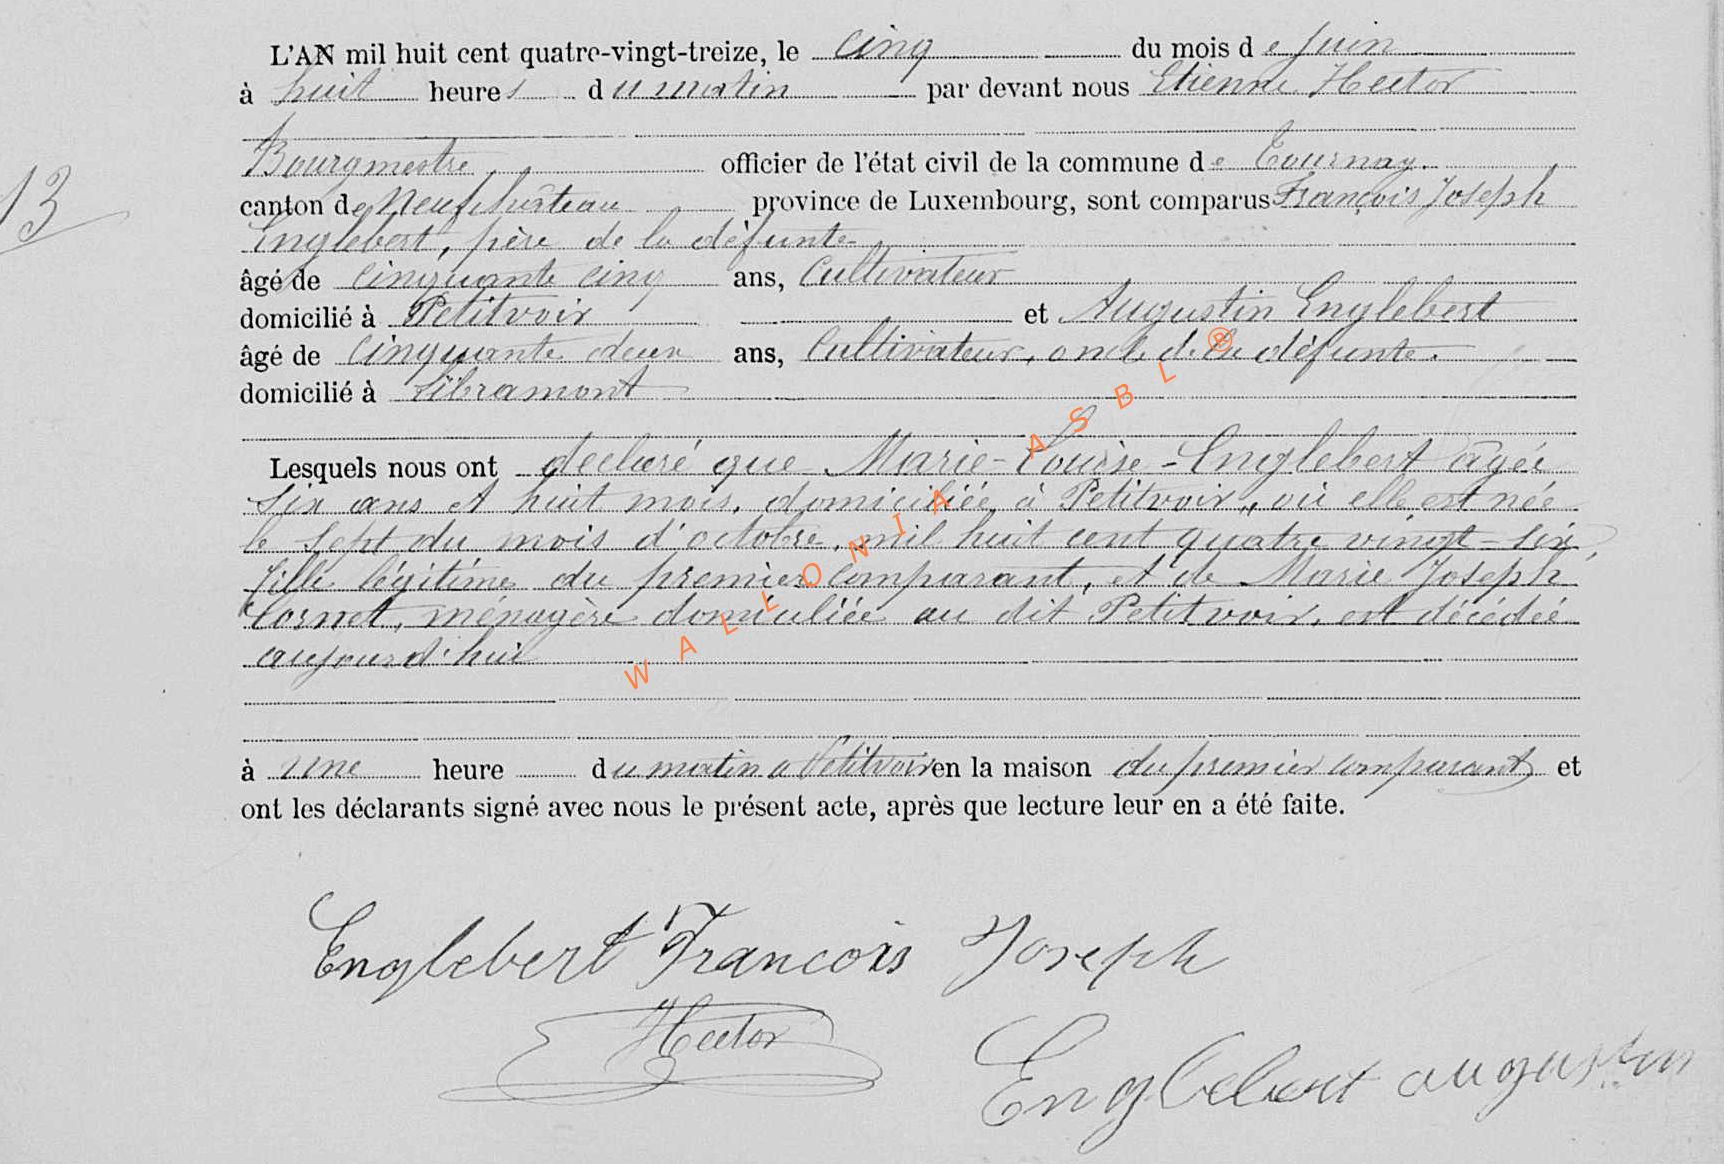 L'AN mil huit cent quatre-vingt-treize, le cinq du mois de Juin
à huit heures du matin par devant nous Etienne Hector
Bourgmestre officier de l'état civil de la commune de Tournay.
13
canton de Neufchâteau province de Luxembourg, sont comparus François Joseph
Englebert, père de la défunte
âgé de cinquante cinq ans, Cultivateur
domicilié à Petitvoir et Augustin Englebert
âgé de cinquante deux ans, Cultivateur, oncle de la défunte.
domicilié à Libramont
Lesquels nous ont declaré que Marie-Louise-Englebert agée
six ans et huit mois, domiciliée à Petitvoir, où elle est née
le sept du mois d'octobre, mil huit cent quatre vingt-six,
fille légitime du premier comparant, et de Marie Joseph
Cornet, ménagère domiciliée au dit Petitvoir, est décédée
aujourd'hui
à une heure du matin a Petitvoir en la maison du premier comparant, et
ont les déclarants signé avec nous le présent acte, après que lecture leur en a été faite.
Englebert François Joseph
Hector
Englebert augustin
WALLONIA ASBL ®